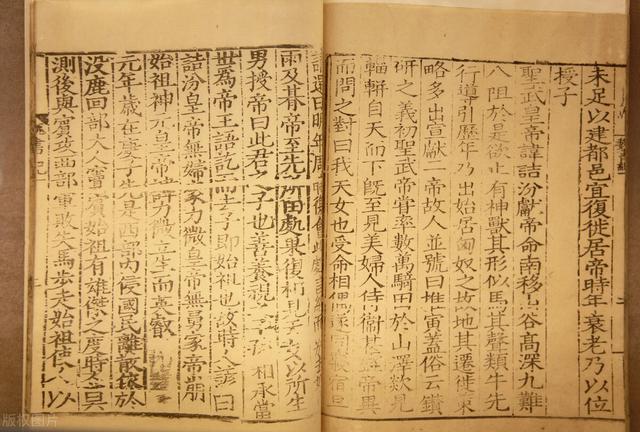 未足以建都邑宜復徙居帝時年衰老乃以位
授子
聖武皇帝諱詰汾獻帝命南移山谷高深九難
八阻於是欲止有神獸其形似馬其聲類牛先
行導引歷年乃出始居匈奴之故地其遷徙策
略多出宣獻二帝故人並號曰推寅蓋俗云鑽
研之義初聖武帝嘗率數萬騎田於山澤欻見
輜軿自天而下既至見美婦人侍衛甚盛帝異
而問之對曰我天女也受命相偶遂同寢宿旦
請還曰明年周時復會此處言終而
雨及朞帝至先所田處果復相見天女以所生
男授帝曰此君之子也善養視之子孫相承當
世爲帝王語訖而去子即始祖也故時人諺曰
詰汾皇帝無婦家力微皇帝無舅家帝崩
始祖神元皇帝諱力微立生而英叡
元年歲在庚子先是西部內侵國民離散依於
沒鹿回部大人竇賓始祖有雄傑之度時人莫
測後與賓攻西部軍敗失馬步走始祖使人以
版权图片